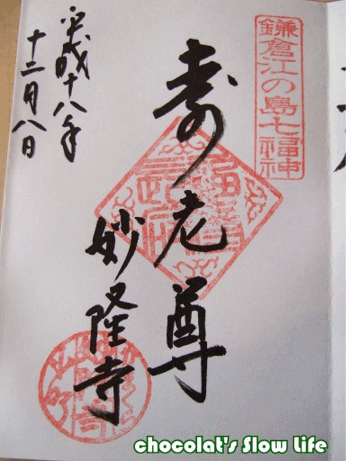 鎌倉江の島七福神
寿老尊
妙隆寺
平成十八年
十二月八日
chocolat's Slow Life